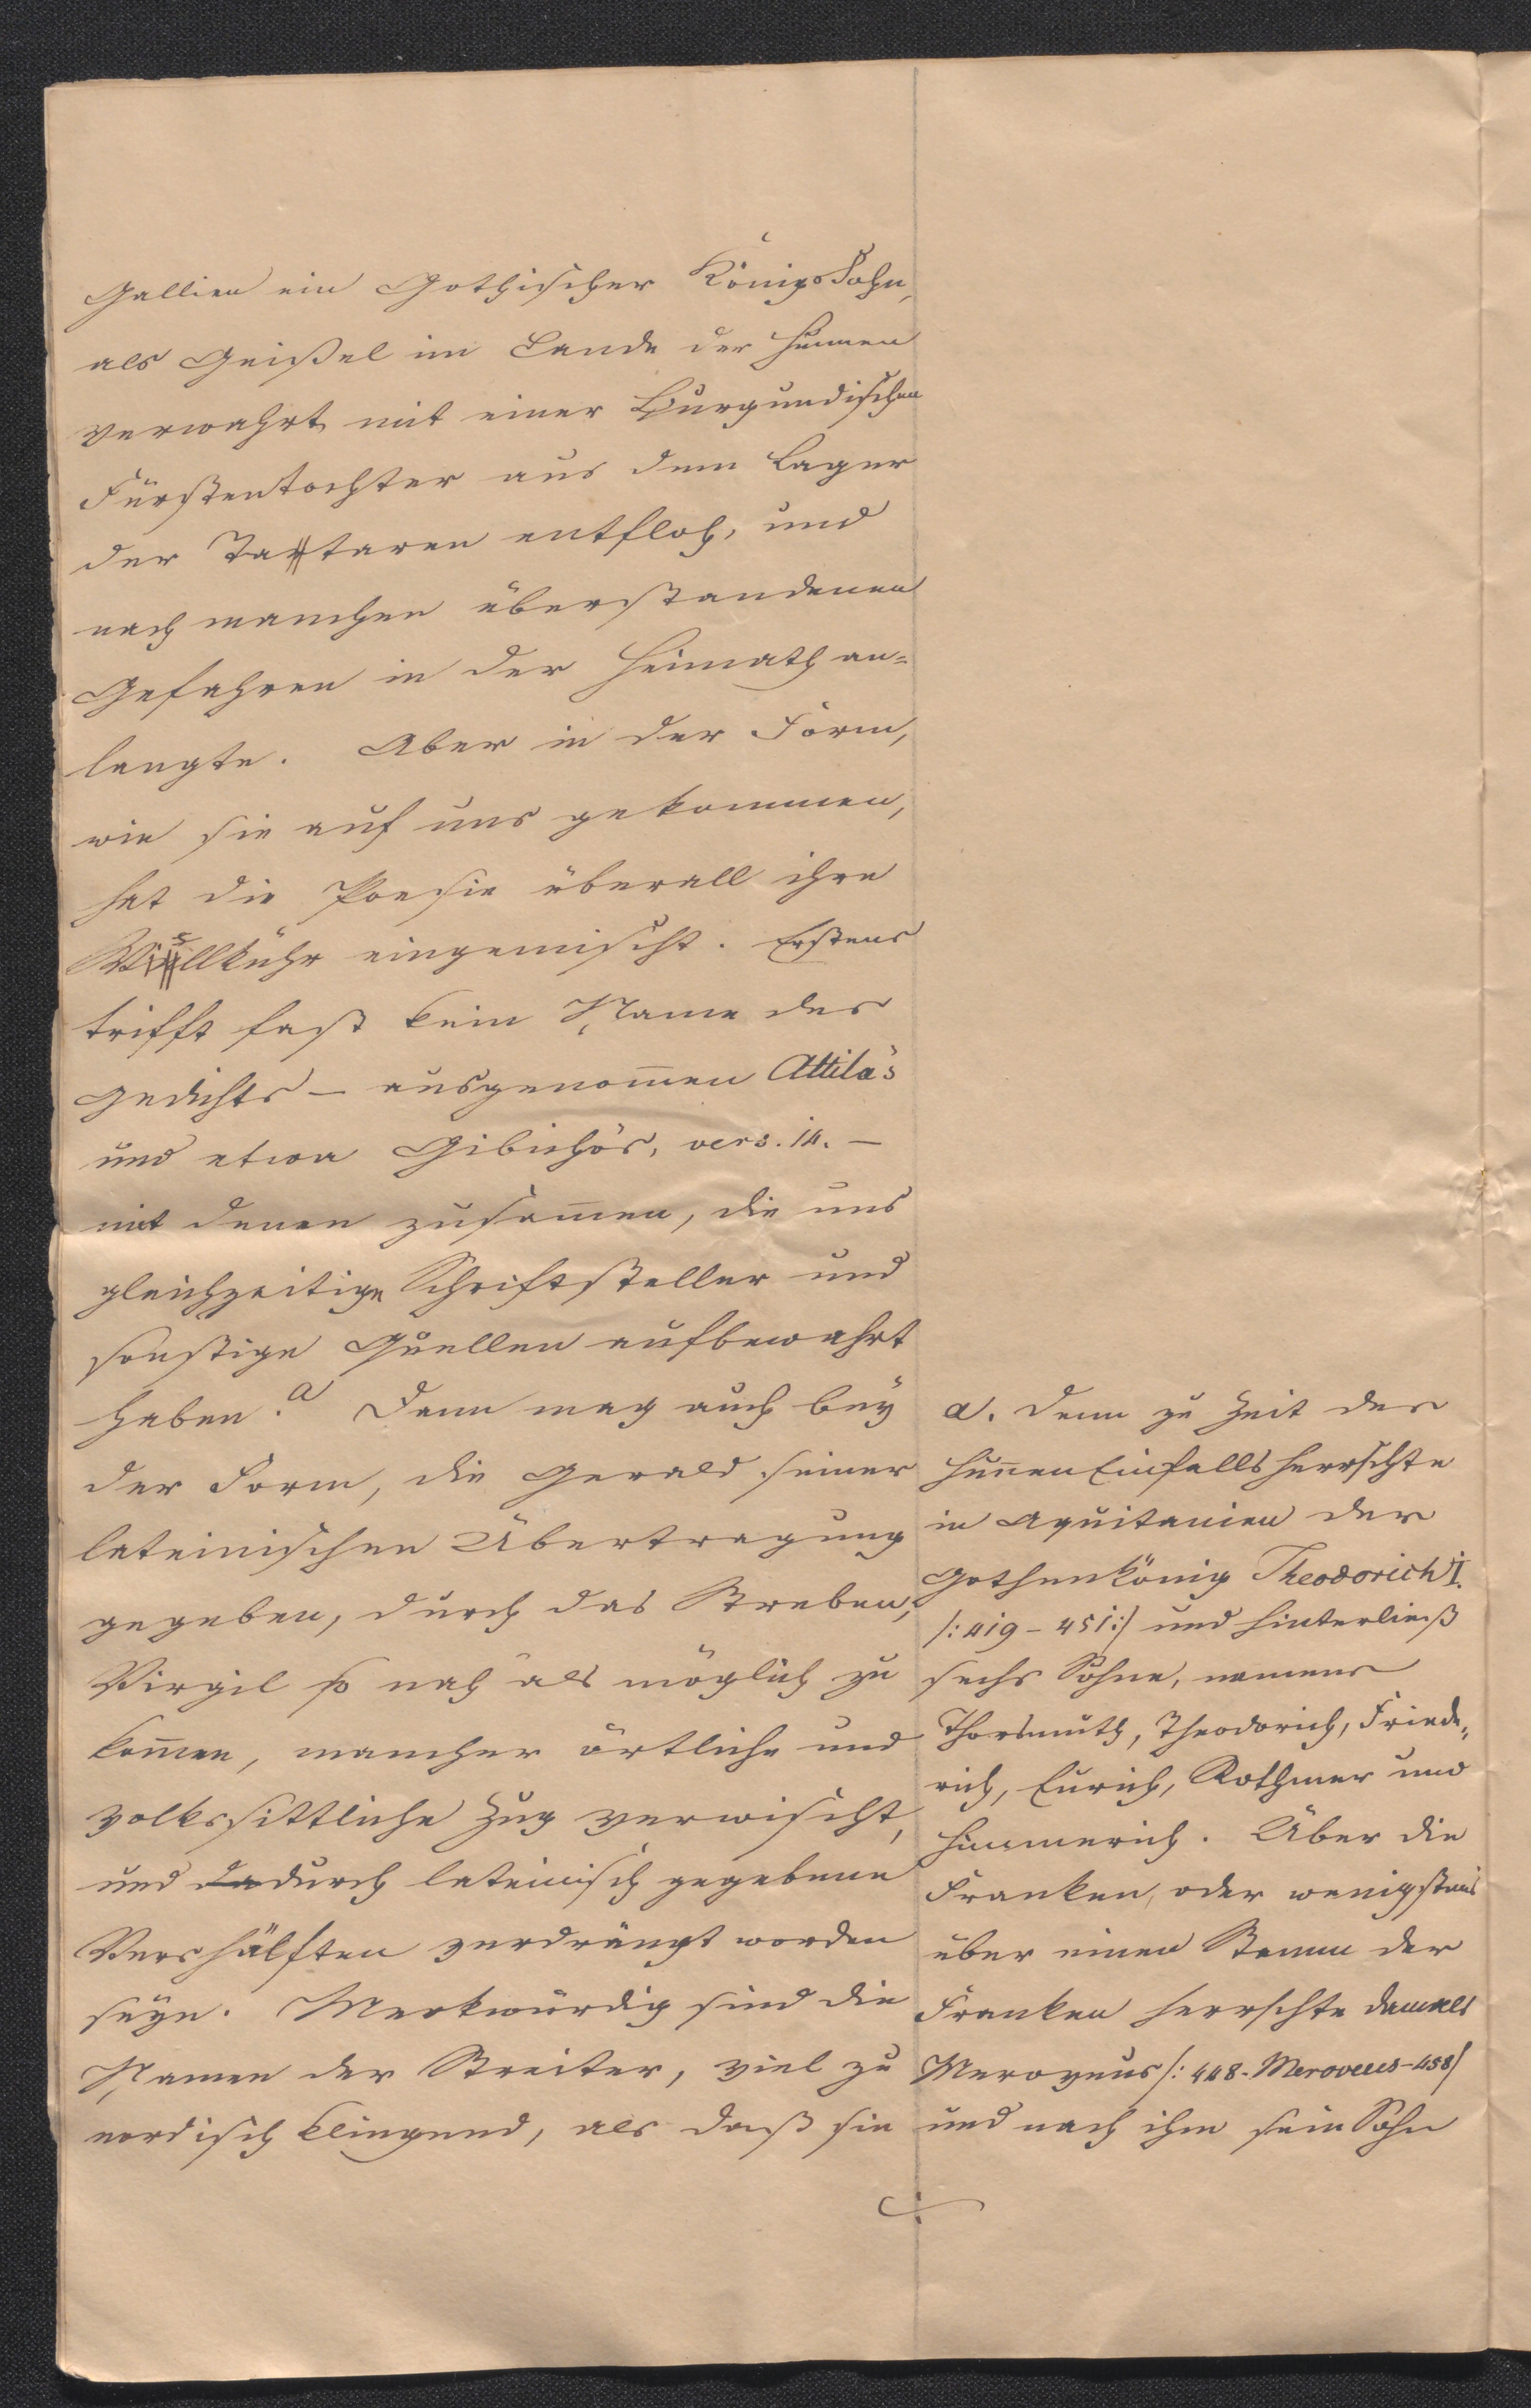 Gallien ein Gothischer KönigsSohn,
als Geißel im Lande der Hunnen
verwahrt mit einer Burgundischen
Fürstentochter aus dem Lager
der Tartaren entfloh, und
nach manchen überstandenen
Gefahren in der Heimath an=
langte. Aber in der Form,
wie sie auf uns gekommen,
hat die Poesie überall ihre
Willkühr eingemischt. Erstens
trifft fast kein Name des
Gedichts – ausgenom̄en Attila's
und etwa Gibicho's, vers. 14. –
mit denen zusam̄en, die uns
gleichzeitige Schriftsteller und
sonstige Quellen aufbewahrt
haben.a Dann mag auch bey
der Form, die Gerald seiner
lateinischen Übertragung
gegeben, durch das Streben,
Virgil so nah als möglich zu
kom̄en, mancher örtliche und
volkssittliche Zug verwischt,
und dadurch lateinisch gegebene
Vershälften verdrängt worden
seyn. Merkwürdig sind die
Namen der Streiter, viel zu
nordisch klingend, als daß sie
a. Denn zu Zeit des
Hun̄enEinfalls herrschte
in Aquitanien der
Gothenkönig Theodorich I.
/: 419 – 451 :/ und hinterließ
sechs Söhne, namens
Thorismuth, Theodorich, Friede„
rich, Eurich, Rothmer und
Himmerich. Über die
Franken, oder wenigstens
über einen Stamm der
Franken herrschte damals
Meroveus /: 448 - Meroveus - 458/
und nach ihm sein Sohn